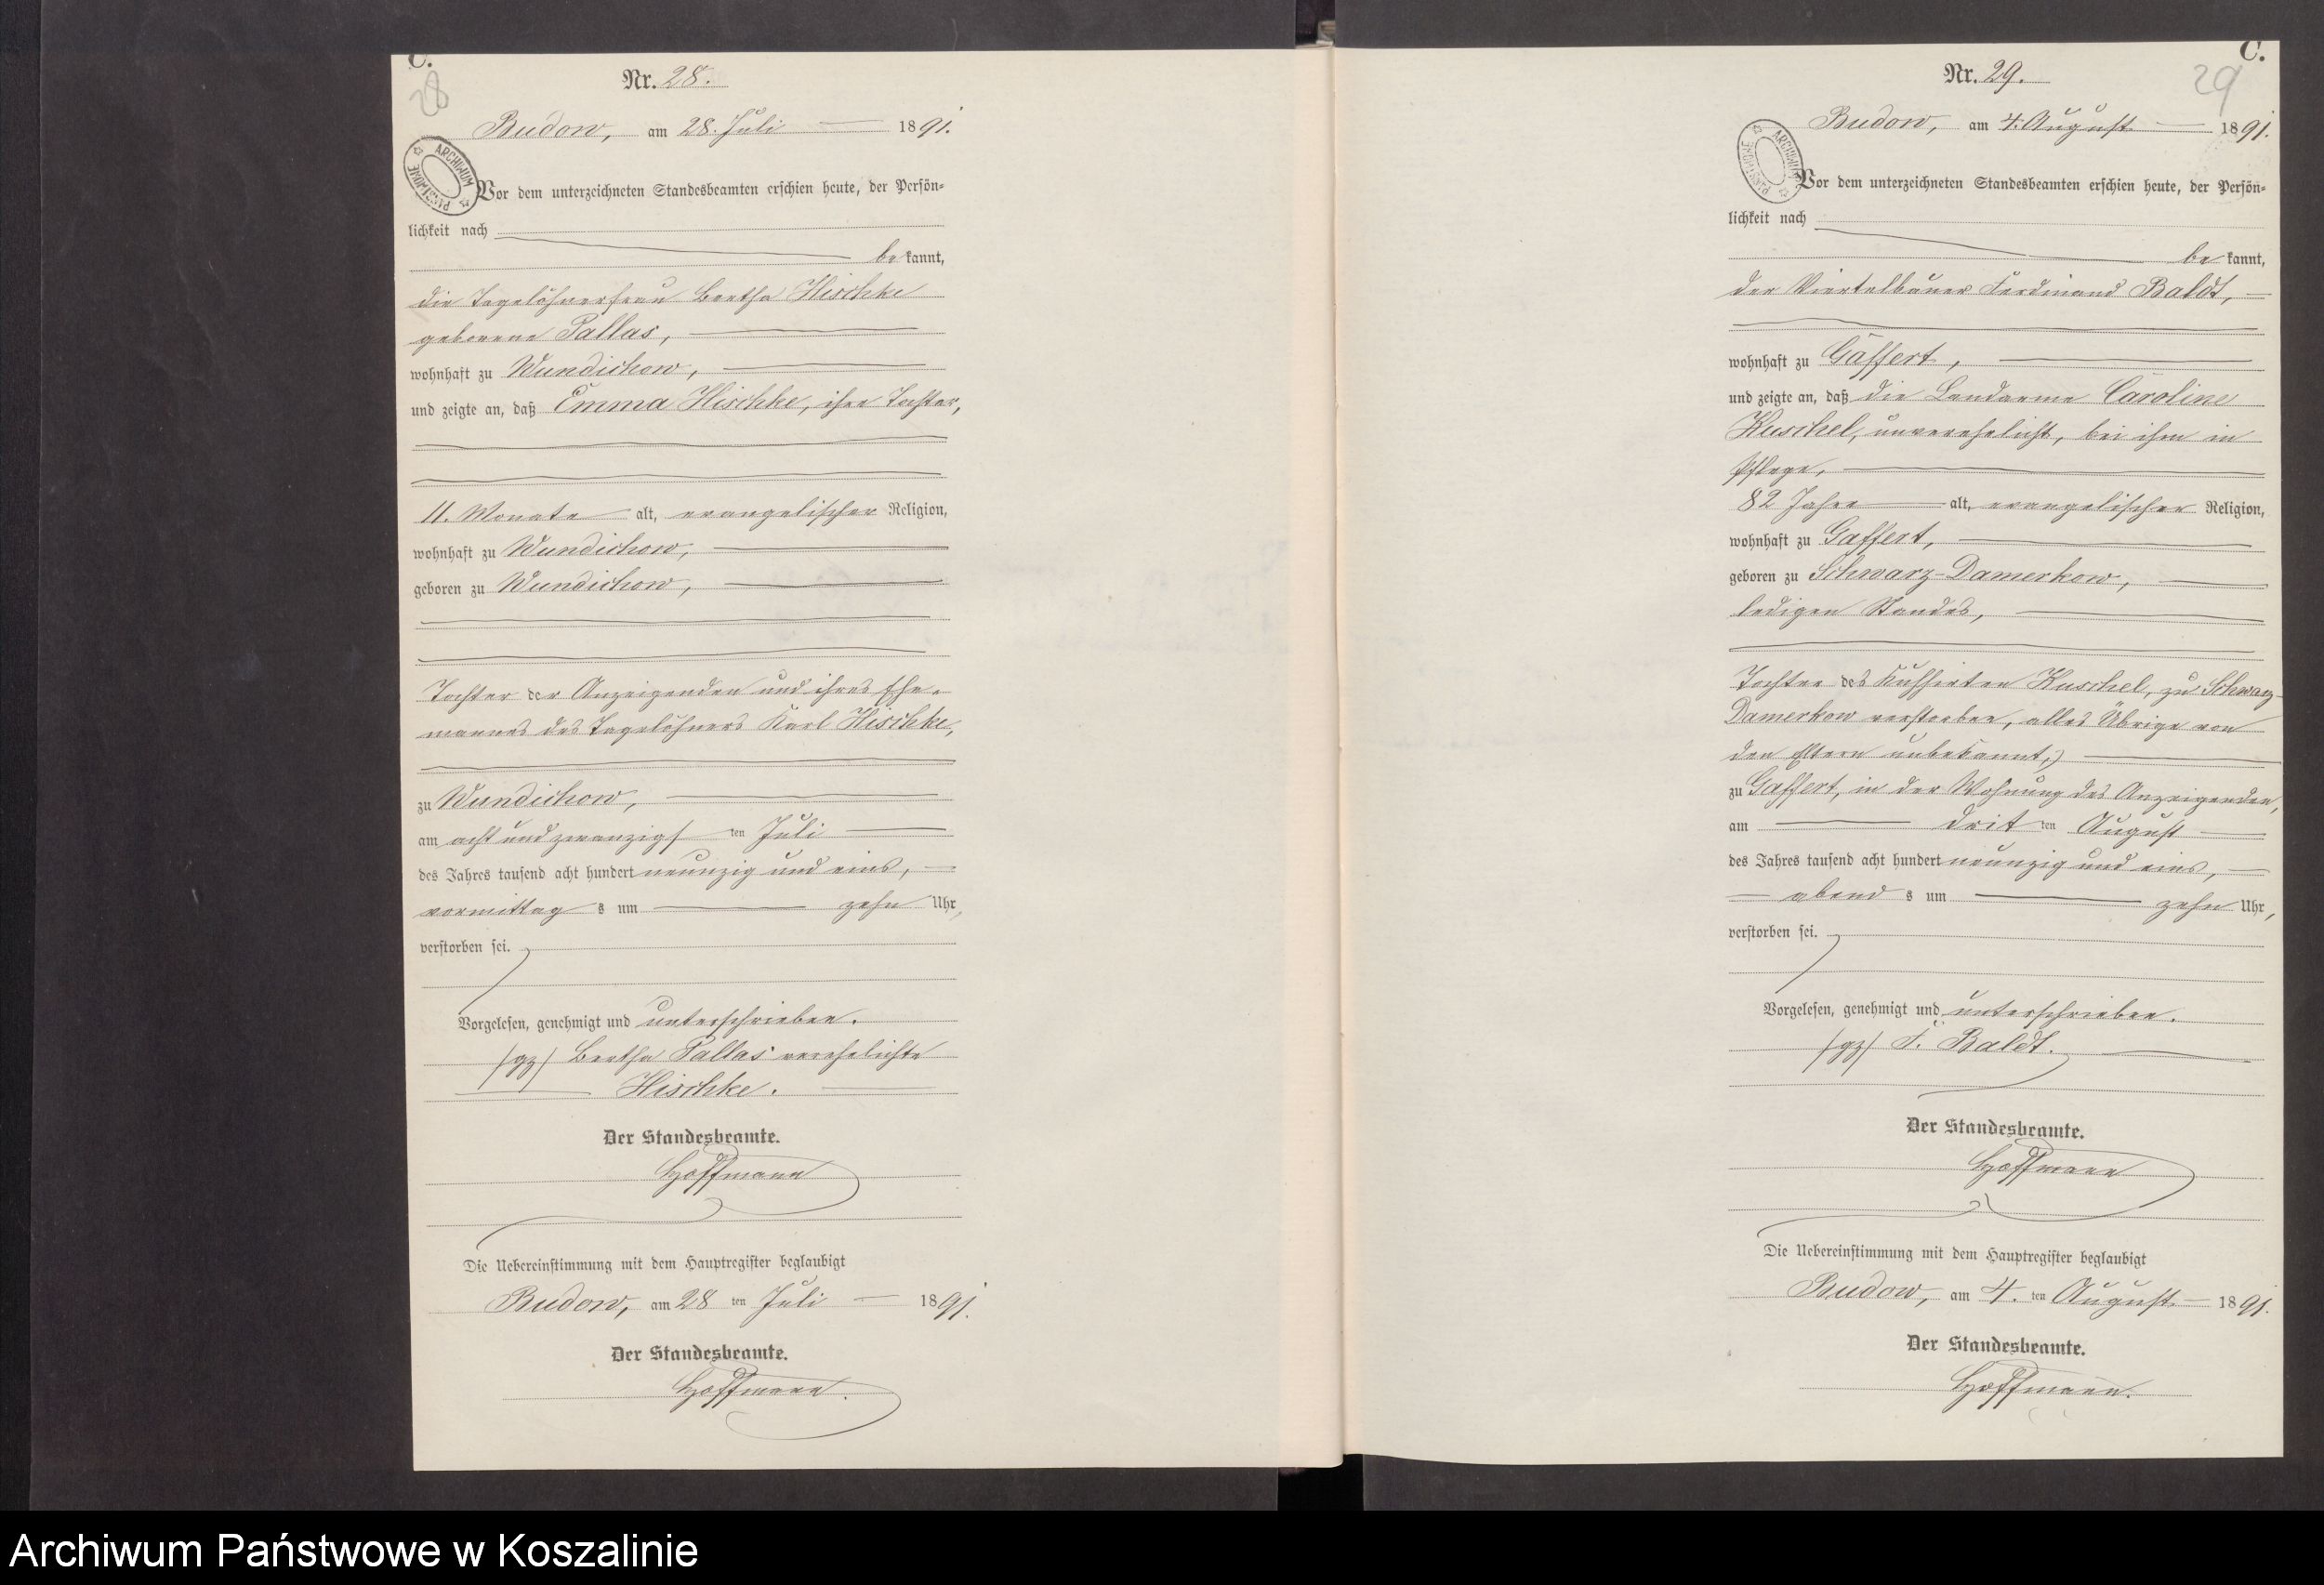 C.
28
Nr. 28.
Budow, am 28. Juli 1891.
ARCHIWUM PAŃSTWOWE
Vor dem unterzeichneten Standesbeamten erschien heute, der Persön-
lichkeit nach
be kannt,
die Tagelöhnerfrau Bertha Hischke
geborene Pallas,
wohnhaft zu Wundichow,
und zeigte an, daß Emma Hischke, ihre Tochter,
11. Monate alt, evangelischer Religion,
wohnhaft zu Wundichow,
geboren zu Wundichow,
Tochter der Anzeigenden und ihres Ehe-
mannes des Tagelöhners Karl Hischke,
zu Wundichow,
am acht und zwanzigsten Juli
des Jahres tausend acht hundert neunzig und eins,
vormittag s um zehn Uhr,
verstorben sei.
Vorgelesen, genehmigt und unterschrieben.
(gz) Bertha Pallas verehelichte
Hischke.
Der Standesbeamte.
Hoffmann
Die Uebereinstimmung mit dem Hauptregister beglaubigt
Budow, am 28 ten Juli 1891.
Der Standesbeamte.
Hoffmann.
C.
29
Nr. 29.
Budow, am 4. August 1891.
ARCHIWUM PAŃSTWOWE
Vor dem unterzeichneten Standesbeamten erschien heute, der Persön-
lichkeit nach
be kannt,
der Viertelbauer Ferdinand Baldt,
wohnhaft zu Gaffert,
und zeigte an, daß die Landarme Caroline
Kuschel, unverehelicht, bei ihm in
Pflege,
82 Jahre alt, evangelischer Religion,
wohnhaft zu Gaffert,
geboren zu Schwarz-Damerkow,
ledigen Standes,
Tochter des Kuhhirten Kuschel, zu Schwarz-
Damerkow verstorben, alles Übrige von
den Eltern unbekannt,
zu Gaffert, in der Wohnung des Anzeigenden,
am dritten August
des Jahres tausend acht hundert neunzig und eins,
abend s um zehn Uhr,
verstorben sei.
Vorgelesen, genehmigt und unterschrieben.
(gz) F. Baldt.
Der Standesbeamte.
Hoffmann
Die Uebereinstimmung mit dem Hauptregister beglaubigt
Budow, am 4. ten August 1891.
Der Standesbeamte.
Hoffmann.
Archiwum Państwowe w Koszalinie